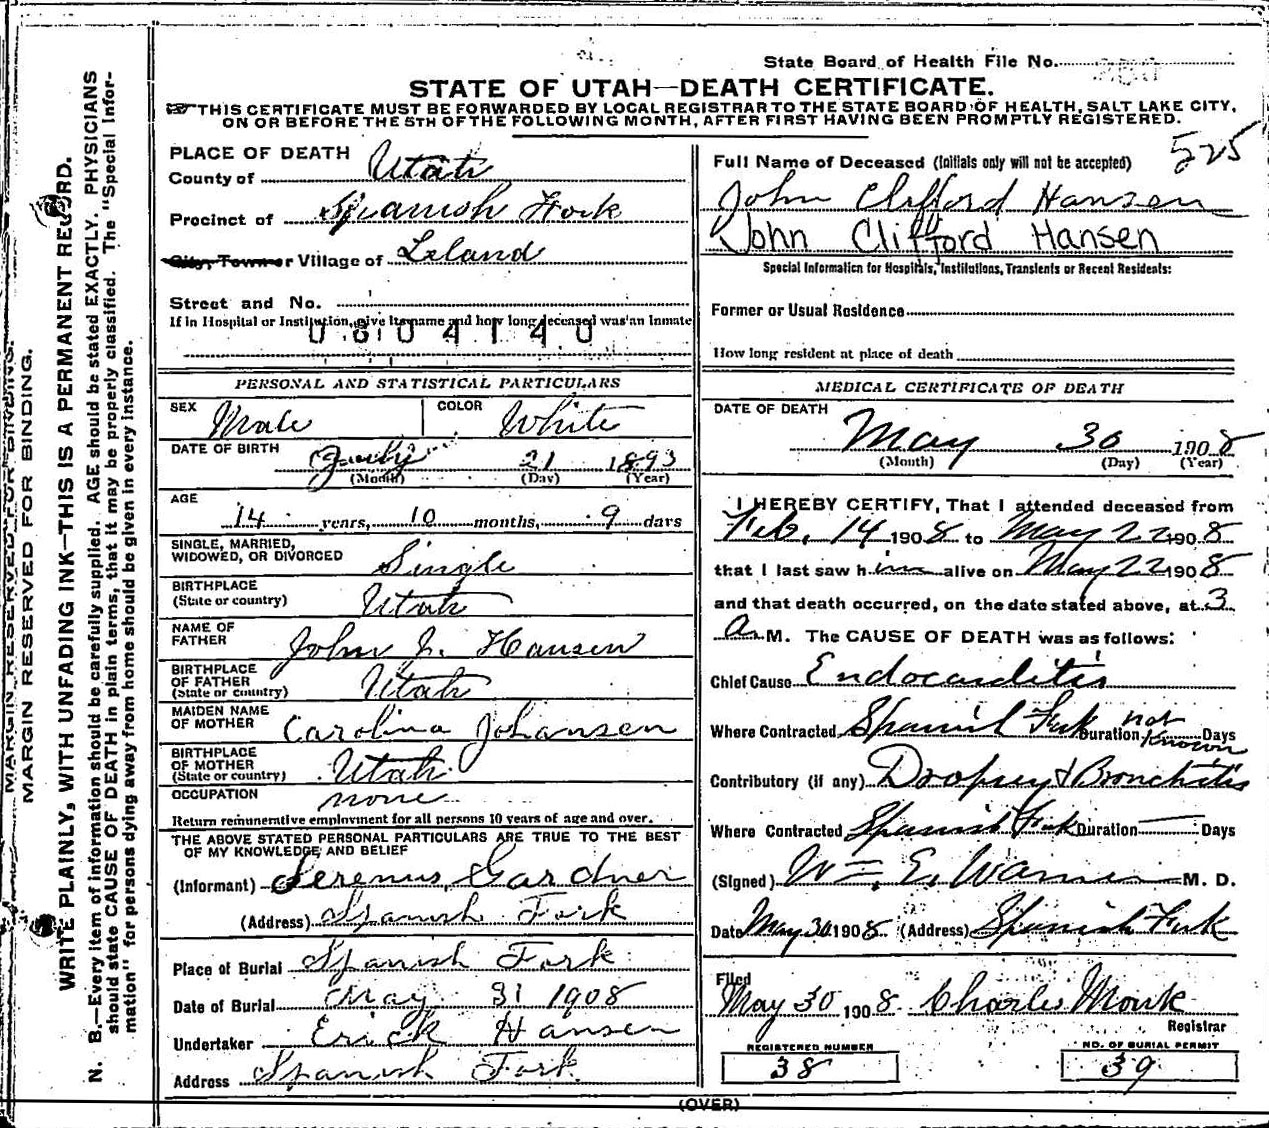 State Board of Health File No.
STATE OF UTAH—DEATH CERTIFICATE.
THIS CERTIFICATE MUST BE FORWARDED BY LOCAL REGISTRAR TO THE STATE BOARD OF HEALTH, SALT LAKE CITY,
ON OR BEFORE THE 5TH OF THE FOLLOWING MONTH, AFTER FIRST HAVING BEEN PROMPTLY REGISTERED.
525
MARGIN RESERVED FOR BINDING.
MARGIN RESERVED FOR BINDING.
WRITE PLAINLY, WITH UNFADING INK—THIS IS A PERMANENT RECORD.
N. B.—Every item of information should be carefully supplied. AGE should be stated EXACTLY. PHYSICIANS
should state CAUSE OF DEATH in plain terms, that it may be properly classified. The "Special Infor-
mation" for persons dying away from home should be given in every instance.
PLACE OF DEATH
County of Utah
Precinct of Spanish Fork
City, Town or Village of Leland
Street and No.
If in Hospital or Institution, give its name and how long deceased was an Inmate
0 8 0 4 1 4 0
PERSONAL AND STATISTICAL PARTICULARS
SEX Male COLOR White
DATE OF BIRTH July 21 1893
(Month) (Day) (Year)
AGE 14 years, 10 months, 9 days
SINGLE, MARRIED,
WIDOWED, OR DIVORCED Single
BIRTHPLACE
(State or country) Utah
NAME OF
FATHER John J. Hansen
BIRTHPLACE
OF FATHER
(State or country) Utah
MAIDEN NAME
OF MOTHER Carolina Johansen
BIRTHPLACE
OF MOTHER
(State or country) Utah
OCCUPATION none
Return remunerative employment for all persons 10 years of age and over.
THE ABOVE STATED PERSONAL PARTICULARS ARE TRUE TO THE BEST
OF MY KNOWLEDGE AND BELIEF
(Informant) Serenus Gardner
(Address) Spanish Fork
Place of Burial Spanish Fork
Date of Burial May 31 1908
Undertaker Erick Hansen
Address Spanish Fork
Full Name of Deceased (Initials only will not be accepted)
John Clifford Hansen
John Clifford Hansen
Special Information for Hospitals, Institutions, Transients or Recent Residents:
Former or Usual Residence
How long resident at place of death
MEDICAL CERTIFICATE OF DEATH
DATE OF DEATH
May 30 1908
(Month) (Day) (Year)
I HEREBY CERTIFY, That I attended deceased from
Feb. 14 1908 to May 22 1908
that I last saw him alive on May 22 1908
and that death occurred, on the date stated above, at 3
A. M. The CAUSE OF DEATH was as follows:
Chief Cause Endocarditis
Where Contracted Spanish Fork Duration not known Days
Contributory (if any) Dropsy & Bronchitis
Where Contracted Spanish Fork Duration — Days
(Signed) Wm. E. Warner M. D.
Date May 30 1908 (Address) Spanish Fork
Filed
May 30 1908 Charles Monk
Registrar
REGISTERED NUMBER
38
NO. OF BURIAL PERMIT
39
(OVER)